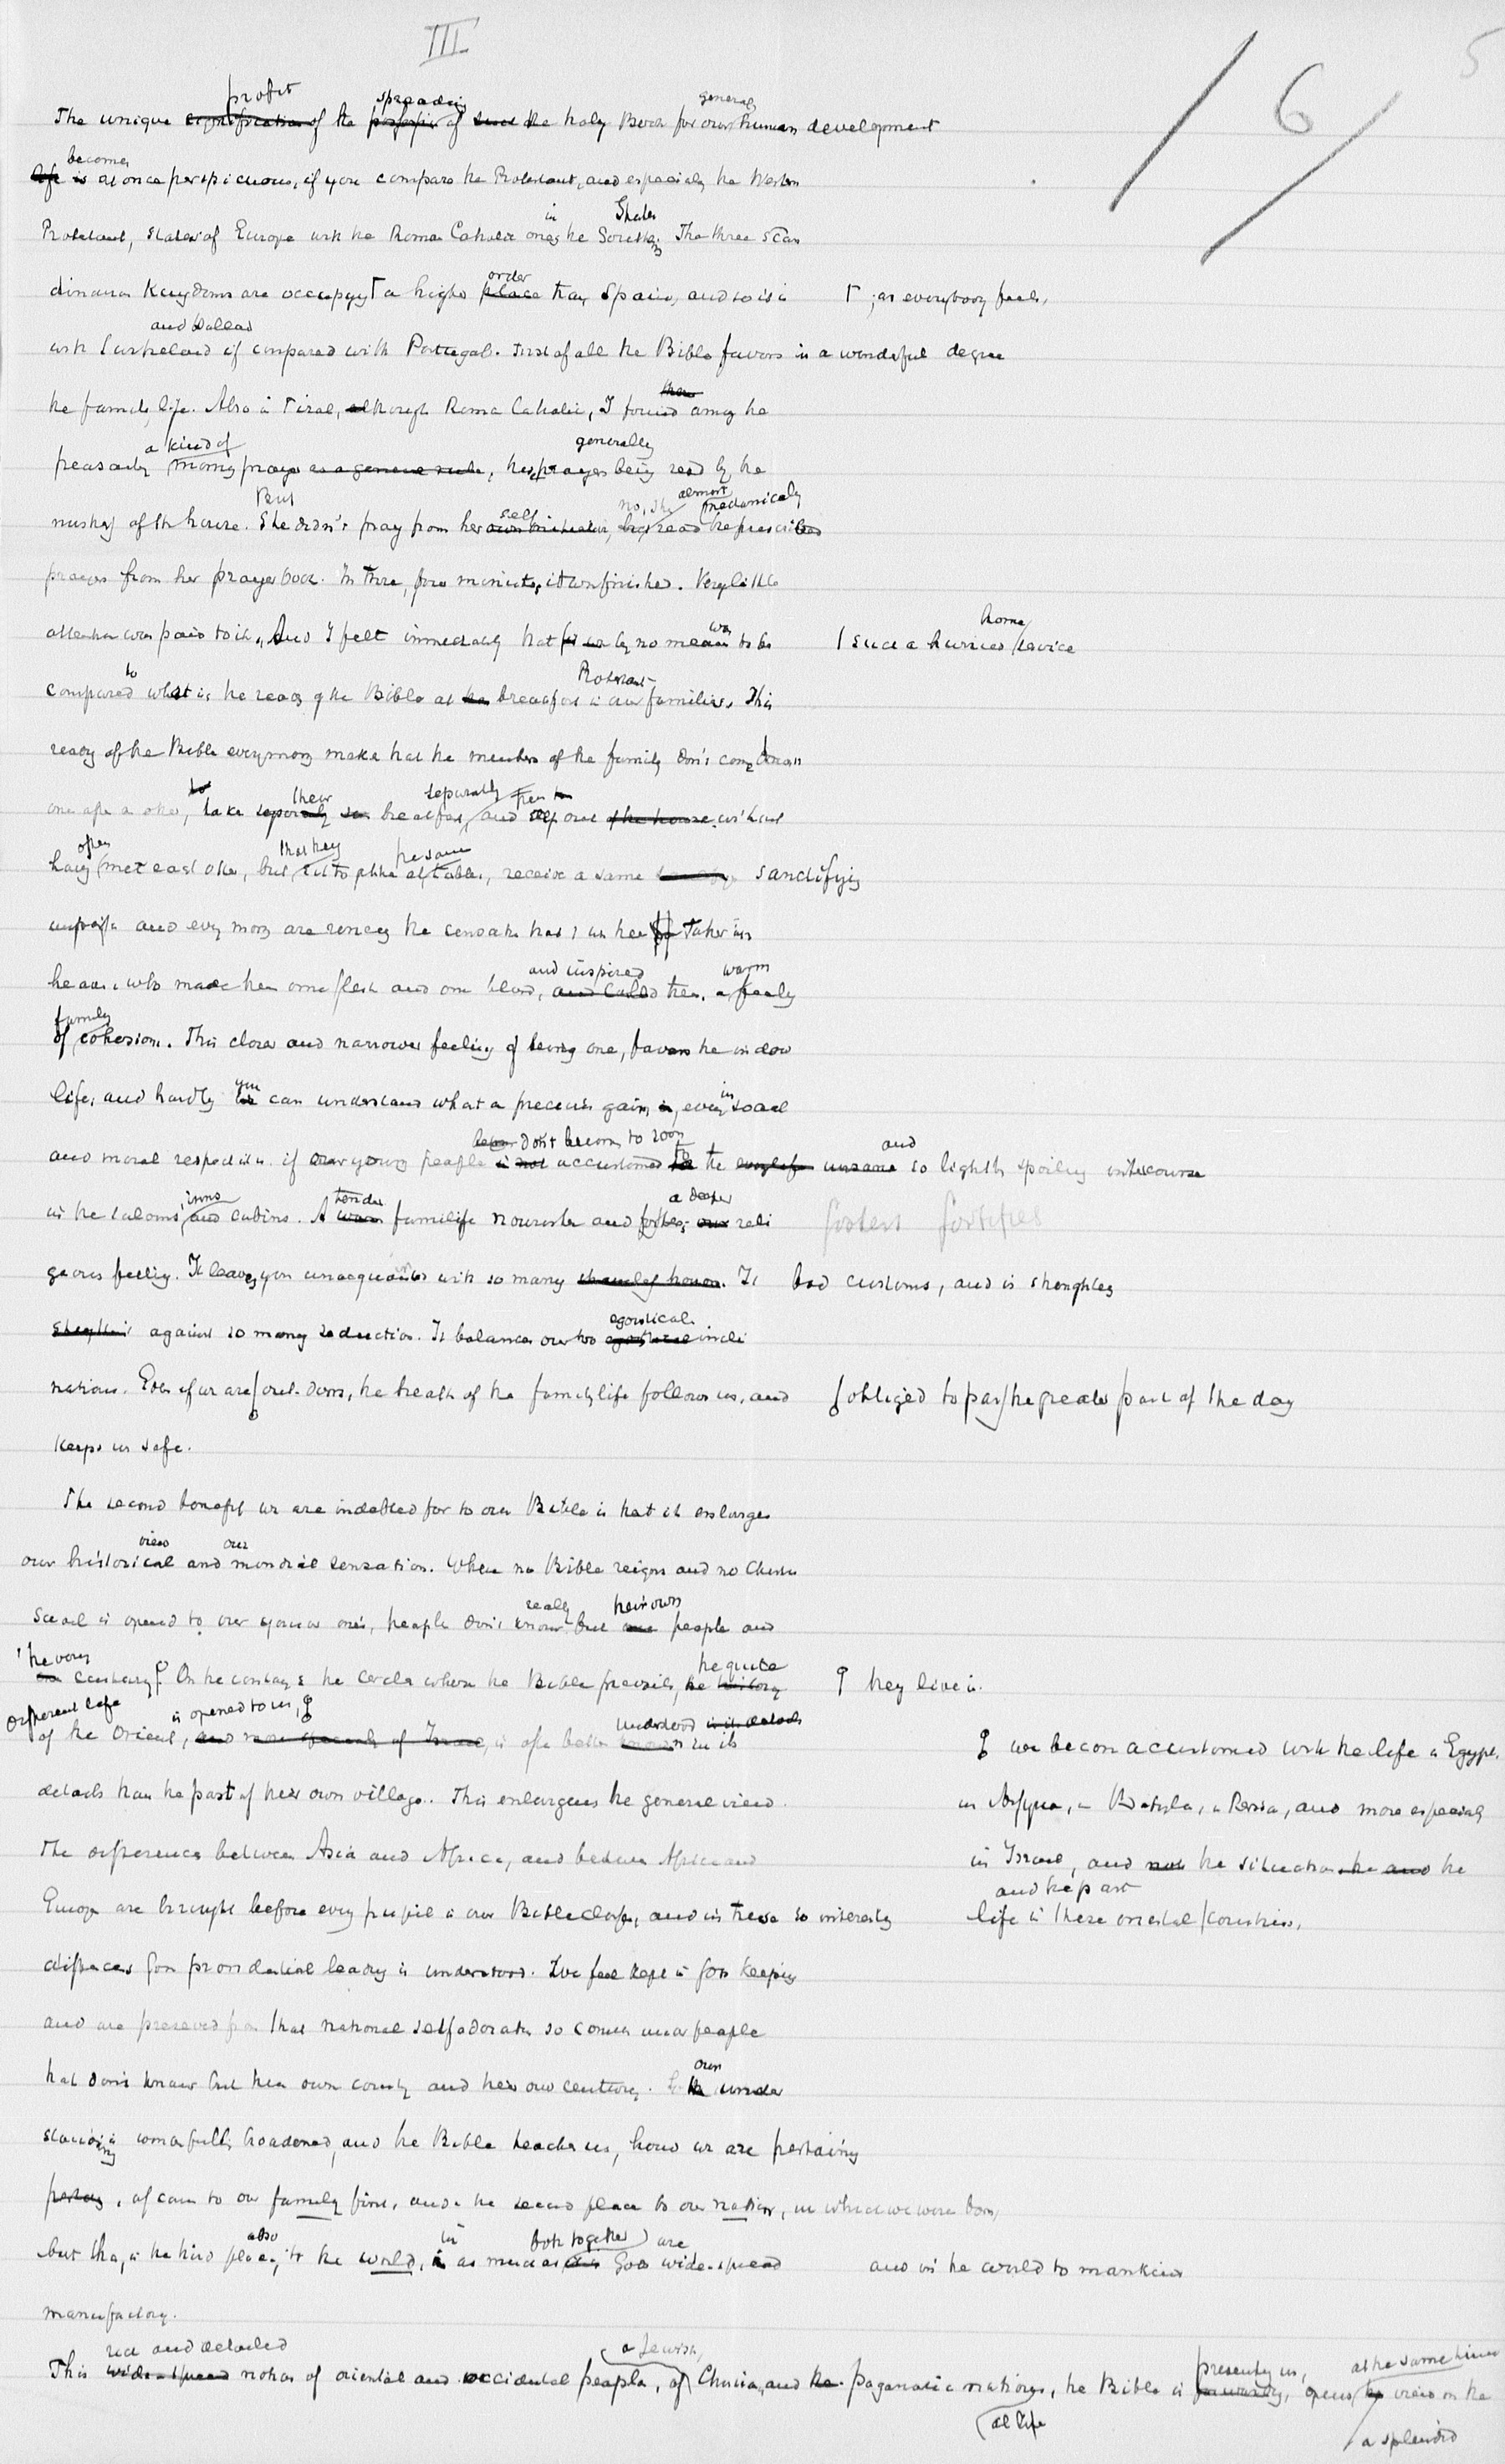 III
5
6
The unique profit of the spreading of the holy Book for our general human development
becomes at once perspicuous, if you compare the Protestant, and especialy the Western
Protestant, States of Europe with the Roman Catholic ones in the South States. The three Scan
dinavian Kingdoms are occupying a higher order than Spain, and so is i
; as everybody feels,
with Switzerland and Holland if compared with Portugal. First of all the Bible favors in a wonderful degree
the family life. Also in Tirol, although Roman Catholic, I found among the
peasantry a kind of morning prayer, these prayers generally being read by the
mistress of the house. But She didn't pray from herself, no, she almost mechanicaly read the prescribed
prayers from her prayerbook. In three, four minutes, it was finished. Very little
attention was paid to it, And I felt immediately that such a hurried home service was by no means to be
compared to what is the reading of the Bible at breakfast in our Protestant families. This
reading of the Bible every morning makes that the members of the family don't come down
one after a other, take their breakfast separately, and then depart without
having often met each other, but that they sit together at the same table, receive a same sanctifying
impression and every morning are renewing the sensation that it is their Father in
heaven who made them one flesh and one blood, and inspired them a warm feeling
of family cohesion. This closer and narrower feeling of being one, favors the indoor
life, and hardly you can understand what a precious gain, even in social
and moral respect it is if our young people don't become to soon accustomed to the unsane and so lightly spoiling intercourse
in the saloons, inns and cabins. A tender familife nourishes and fosters a deeper reli
fosters fortifies
gious feeling. It leaves you unacquainted with so many bad customs, and is strengthening
against so many seduction. It balances our too egoistical incli
nations. Even if we are obliged to pass the greater part of the day out-doors, the breath of the family life follows us, and
keeps us safe.
The second benefit we are indebted for to our Bible is that it enlarges
our historical view and our mondial sensation. Where no Bible reigns and no Christian
School is opened to our younger ones, people don't really know but their own people and
the very century they live in. On the contrary in the circles where the Bible prevails, the quite
different life of the Orient, is opened to us, is often better understood in its
we become accustomed with the life in Egypt,
in Assyria, in Babylon, in Persia, and more especialy
in Israel, and the situation the
life and the past in these oriental countries,
details than the past of their own village. This enlargens the general view.
The differences between Asia and Africa, and between Africa and
Europe are brought before every pupil in our Bibleclass, and in these so interesting
differences Gods providential leading is understood. We feel kept in Gods keeping
and are preserved from that national selfadoration so common under people
that don't know but their own country and their own century. Our under
standing is wonderfully broadened, and the Bible teaches us, how we are pertaining
, of course to our family first, and in the second place to our nation, in which we were born,
but than, in the third place, also to the world, and in the world to mankind in as much as both together are Gods wide-spread
manufactory.
This rich and detailed notion of oriental and occidental people, of a Jewish, Christian, and paganatic national life, the Bible is presenting us, opens at the same time a splendid view on the